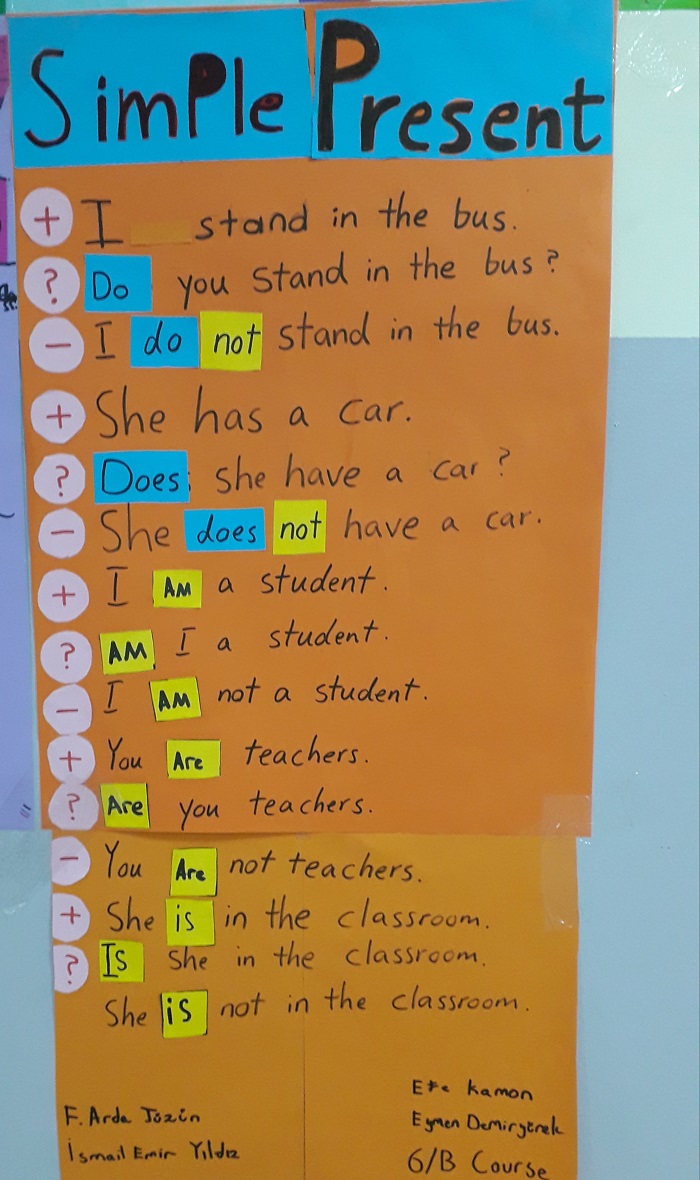 SimPle Present
+ I stand in the bus.
? Do you stand in the bus?
- I do not stand in the bus.
+ She has a car.
? Does she have a car?
- She does not have a car.
+ I AM a student.
? AM I a student.
- I AM not a student.
+ You Are teachers.
? Are you teachers.
- You Are not teachers.
+ She is in the classroom.
? Is she in the classroom.
She is not in the classroom.
F. Arda
İsmail Emir Yıldız
Kamon
Eymen
6/B Course